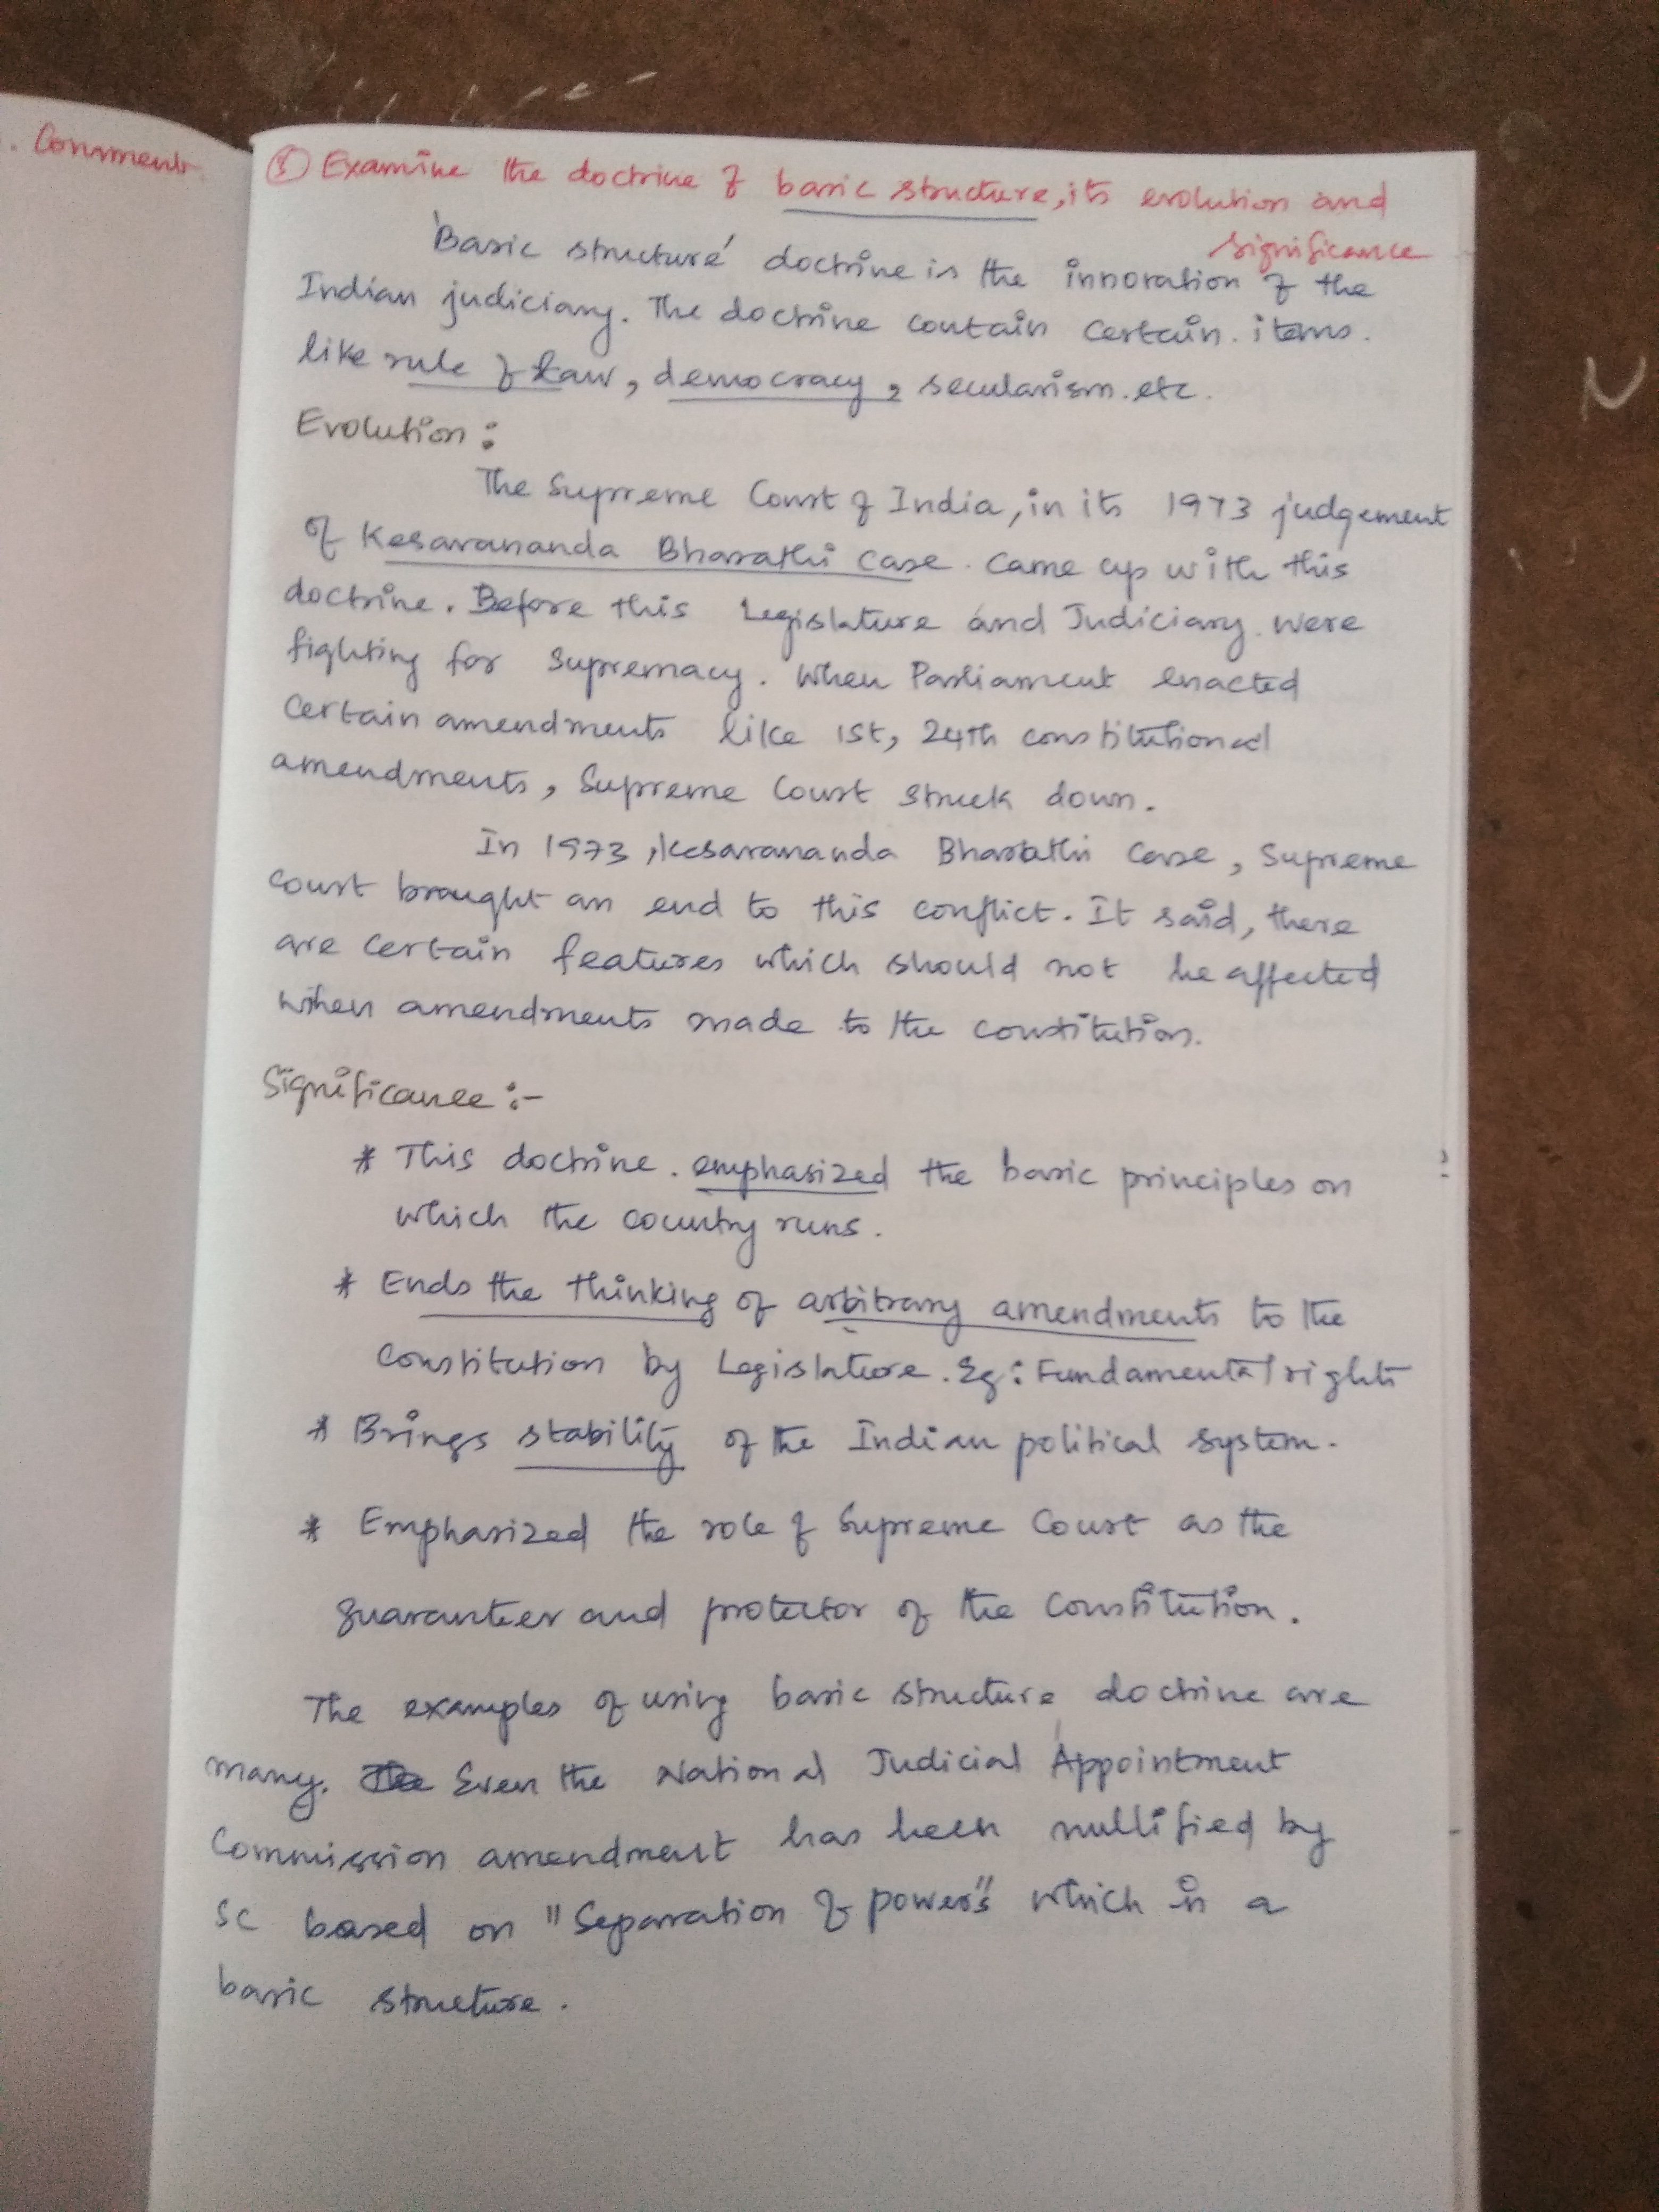 . Comment
⑧ Examine the doctrine of basic structure, its evolution and
significance
'Basic structure' doctrine is the innovation of the
Indian judiciary. The doctrine contain certain items.
like rule of law, democracy, secularism.etc.
Evolution:
The Supreme Court of India, in its 1973 judgement
of Kesavananda Bharathi case. came up with this
doctrine. Before this Legislature and Judiciary were
fighting for supremacy. When Parliament enacted
certain amendments like 1st, 24th constitutional
amendments, Supreme Court struck down.
In 1973, Kesavananda Bharathi Case, Supreme
court brought an end to this conflict. It said, there
are certain features which should not be affected
when amendments made to the constitution.
Significance:-
* This doctrine. emphasized the basic principles on
which the country runs.
* Ends the thinking of arbitrary amendments to the
constitution by Legislature. Eg: Fundamental rights
* Brings stability of the Indian political system.
* Emphasized the role of Supreme Court as the
guarantier and protector of the Constitution.
The examples of using basic structure doctrine are
many. Even the National Judicial Appointment
Commission amendment has been nullified by
SC based on "Separation of power's" which is a
basic structure.
N